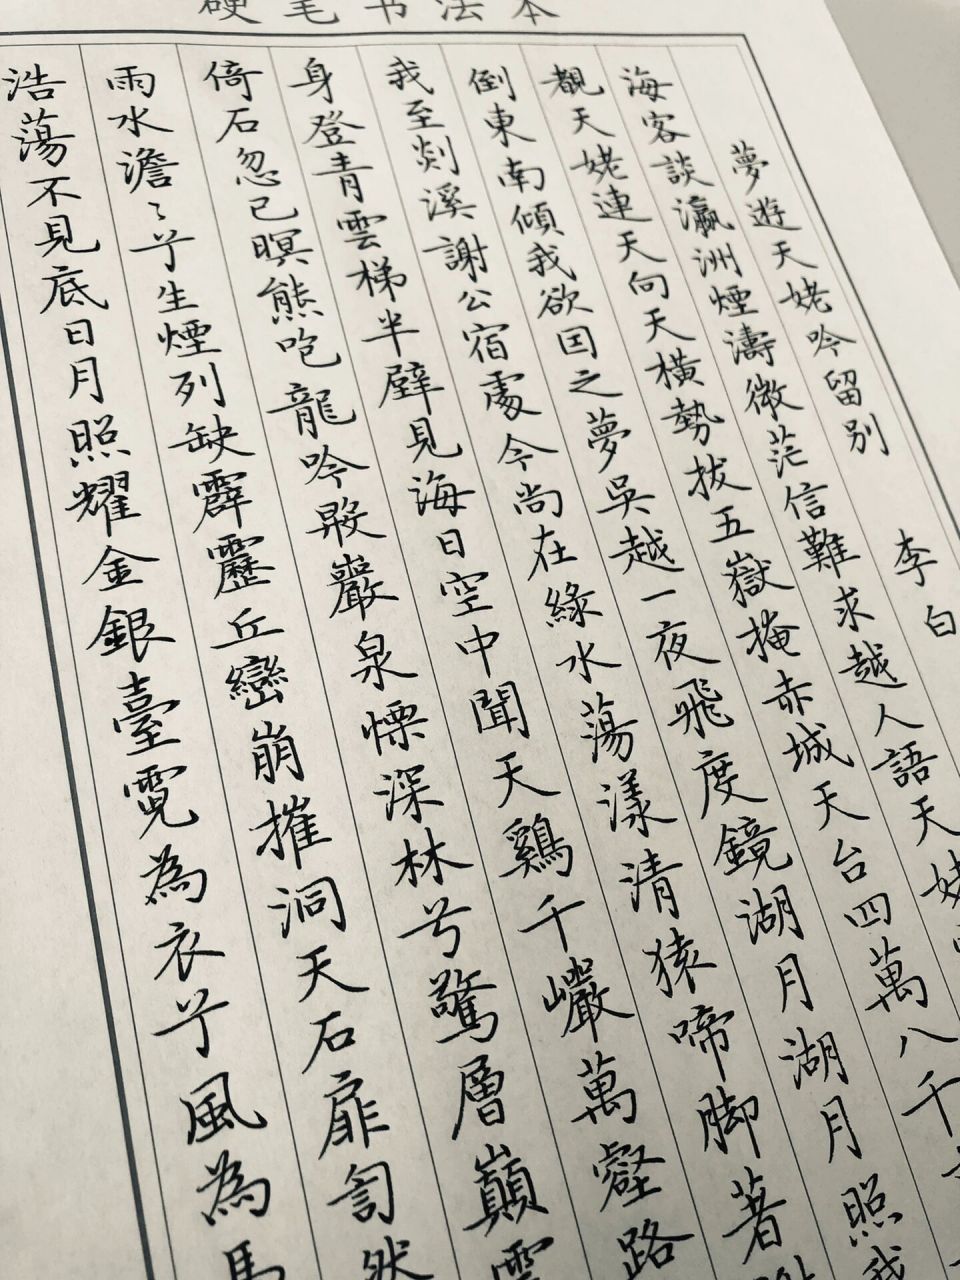 硬笔书法本
夢遊天姥吟留別 李白
海客談瀛洲煙濤微茫信難求越人語天姥
覩天姥連天向天橫勢拔五嶽掩赤城天台四萬八千
倒東南傾我欲囙之夢吳越一夜飛度鏡湖月湖月照我
我至剡溪謝公宿處今尚在綠水蕩漾清猿啼脚著
身登青雲梯半壁見海日空中聞天鷄千巖萬壑路
倚石忽已暝熊咆龍吟殷巖泉慄深林兮驚層巔雲
雨水澹〻兮生煙列缺霹靂丘巒崩摧洞天石扉訇然
浩蕩不見底日月照耀金銀臺霓為衣兮風為馬